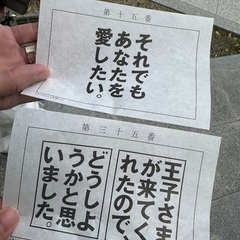 第十五番
それでも
あなたを
愛したい。
第三十五番
王子さま
が来てく
れたので、
どうしよ
うかと思
いました。